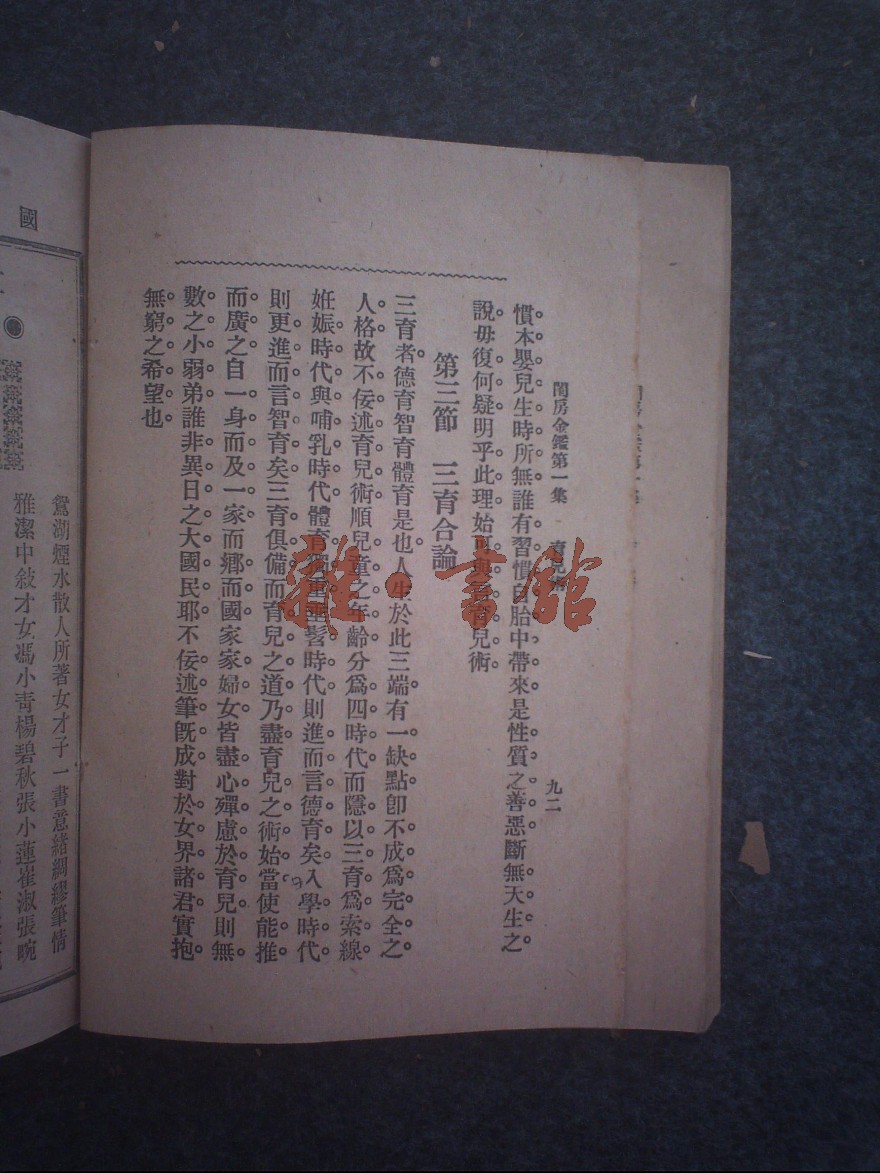 閨房金鑑第一集 育兒術 九二
慣本嬰兒生時所無誰有習慣自胎中帶來是性質之善惡斷無天生之
說毋復何疑明乎此理始可與言育兒術
第三節 三育合論
三育者德育智育體育是也人生於此三端有一缺點卽不成爲完全之
人格故不佞述育兒術順兒童之年齡分爲四時代而隱以三育爲索線
姙娠時代與哺乳時代體育獨重垂髫時代則進而言德育矣入學時代
則更進而言智育矣三育俱備而育兒之道乃盡育兒之術始當使能推
而廣之自一身而及一家而鄉而國家家婦女皆盡心殫慮於育兒則無
數之小弱弟誰非異日之大國民耶不佞述筆旣成對於女界諸君實抱
無窮之希望也
雜·書館
國
鴛湖煙水散人所著女才子一書意緒綢繆筆情
雅潔中敍才女馮小靑楊碧秋張小蓮崔淑張畹